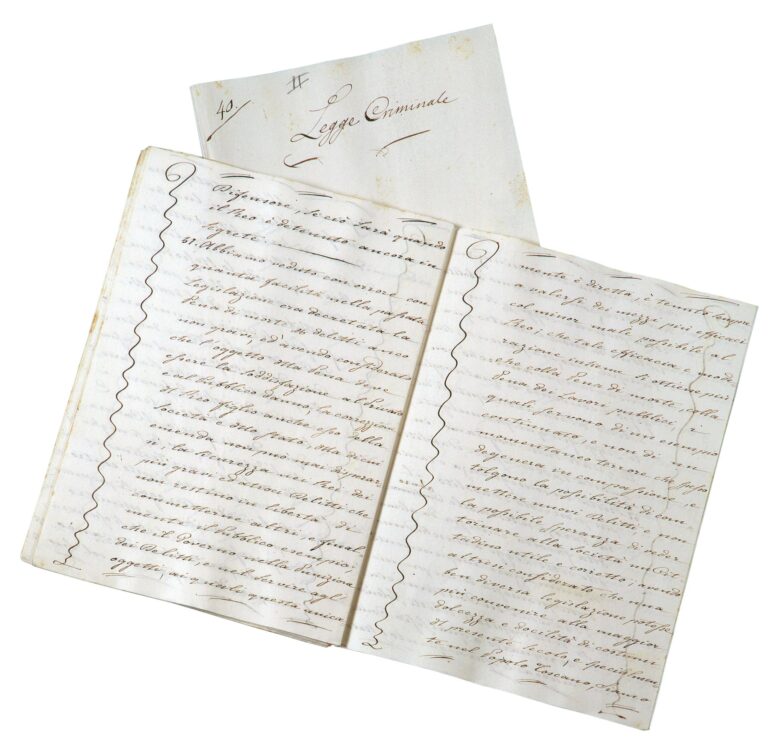 40.
II
Legge Criminale
Difensore, se ciò sarà quando
il Reo è detenuto ancora in
segreta.
51. Abbiamo veduto con orrore con
quanta facilità nella passata
legislazione era decretata la
Pena di morte per delitti anco
non gravi, ed avendo considerato
che l'oggetto della Pena deve
essere la soddisfazione al Privato
ed al Pubblico danno, la correzione
del Reo figlio anche esso della
Società e dello Stato, della di cui
emenda non può mai disperar
si, la sicurezza nei Rei dei
più gravi ed atroci Delitti che
non restino in libertà di
commetterne altri, e final
mente il Pubblico esempio,
che il Governo nella Punizione
de Delitti, e nel servire agli
oggetti, ai quali questa unica
mente è diretta, è tenuto sempre
a valersi de mezzi più efficaci
col minor male possibile al
Reo; che tale efficacia, e mode
razione insieme si ottiene più
che colla Pena di morte, colla
Pena de Lavori Pubblici, i
quali servono di un esempio
continuato, e non di un mo
mentaneo terrore, che spesso
degenera in compassione, e
tolgono la possibilità di com
mettere nuovi delitti, e non
la possibile speranza di veder
tornare alla Società un Cit
tadino utile e corretto; avendo
altresì considerato che una
ben diversa legislazione potesse
più convenire alla maggior
dolcezza e docilità di costumi
del presente secolo, e specialmen
te nel Popolo Toscano, Siamo